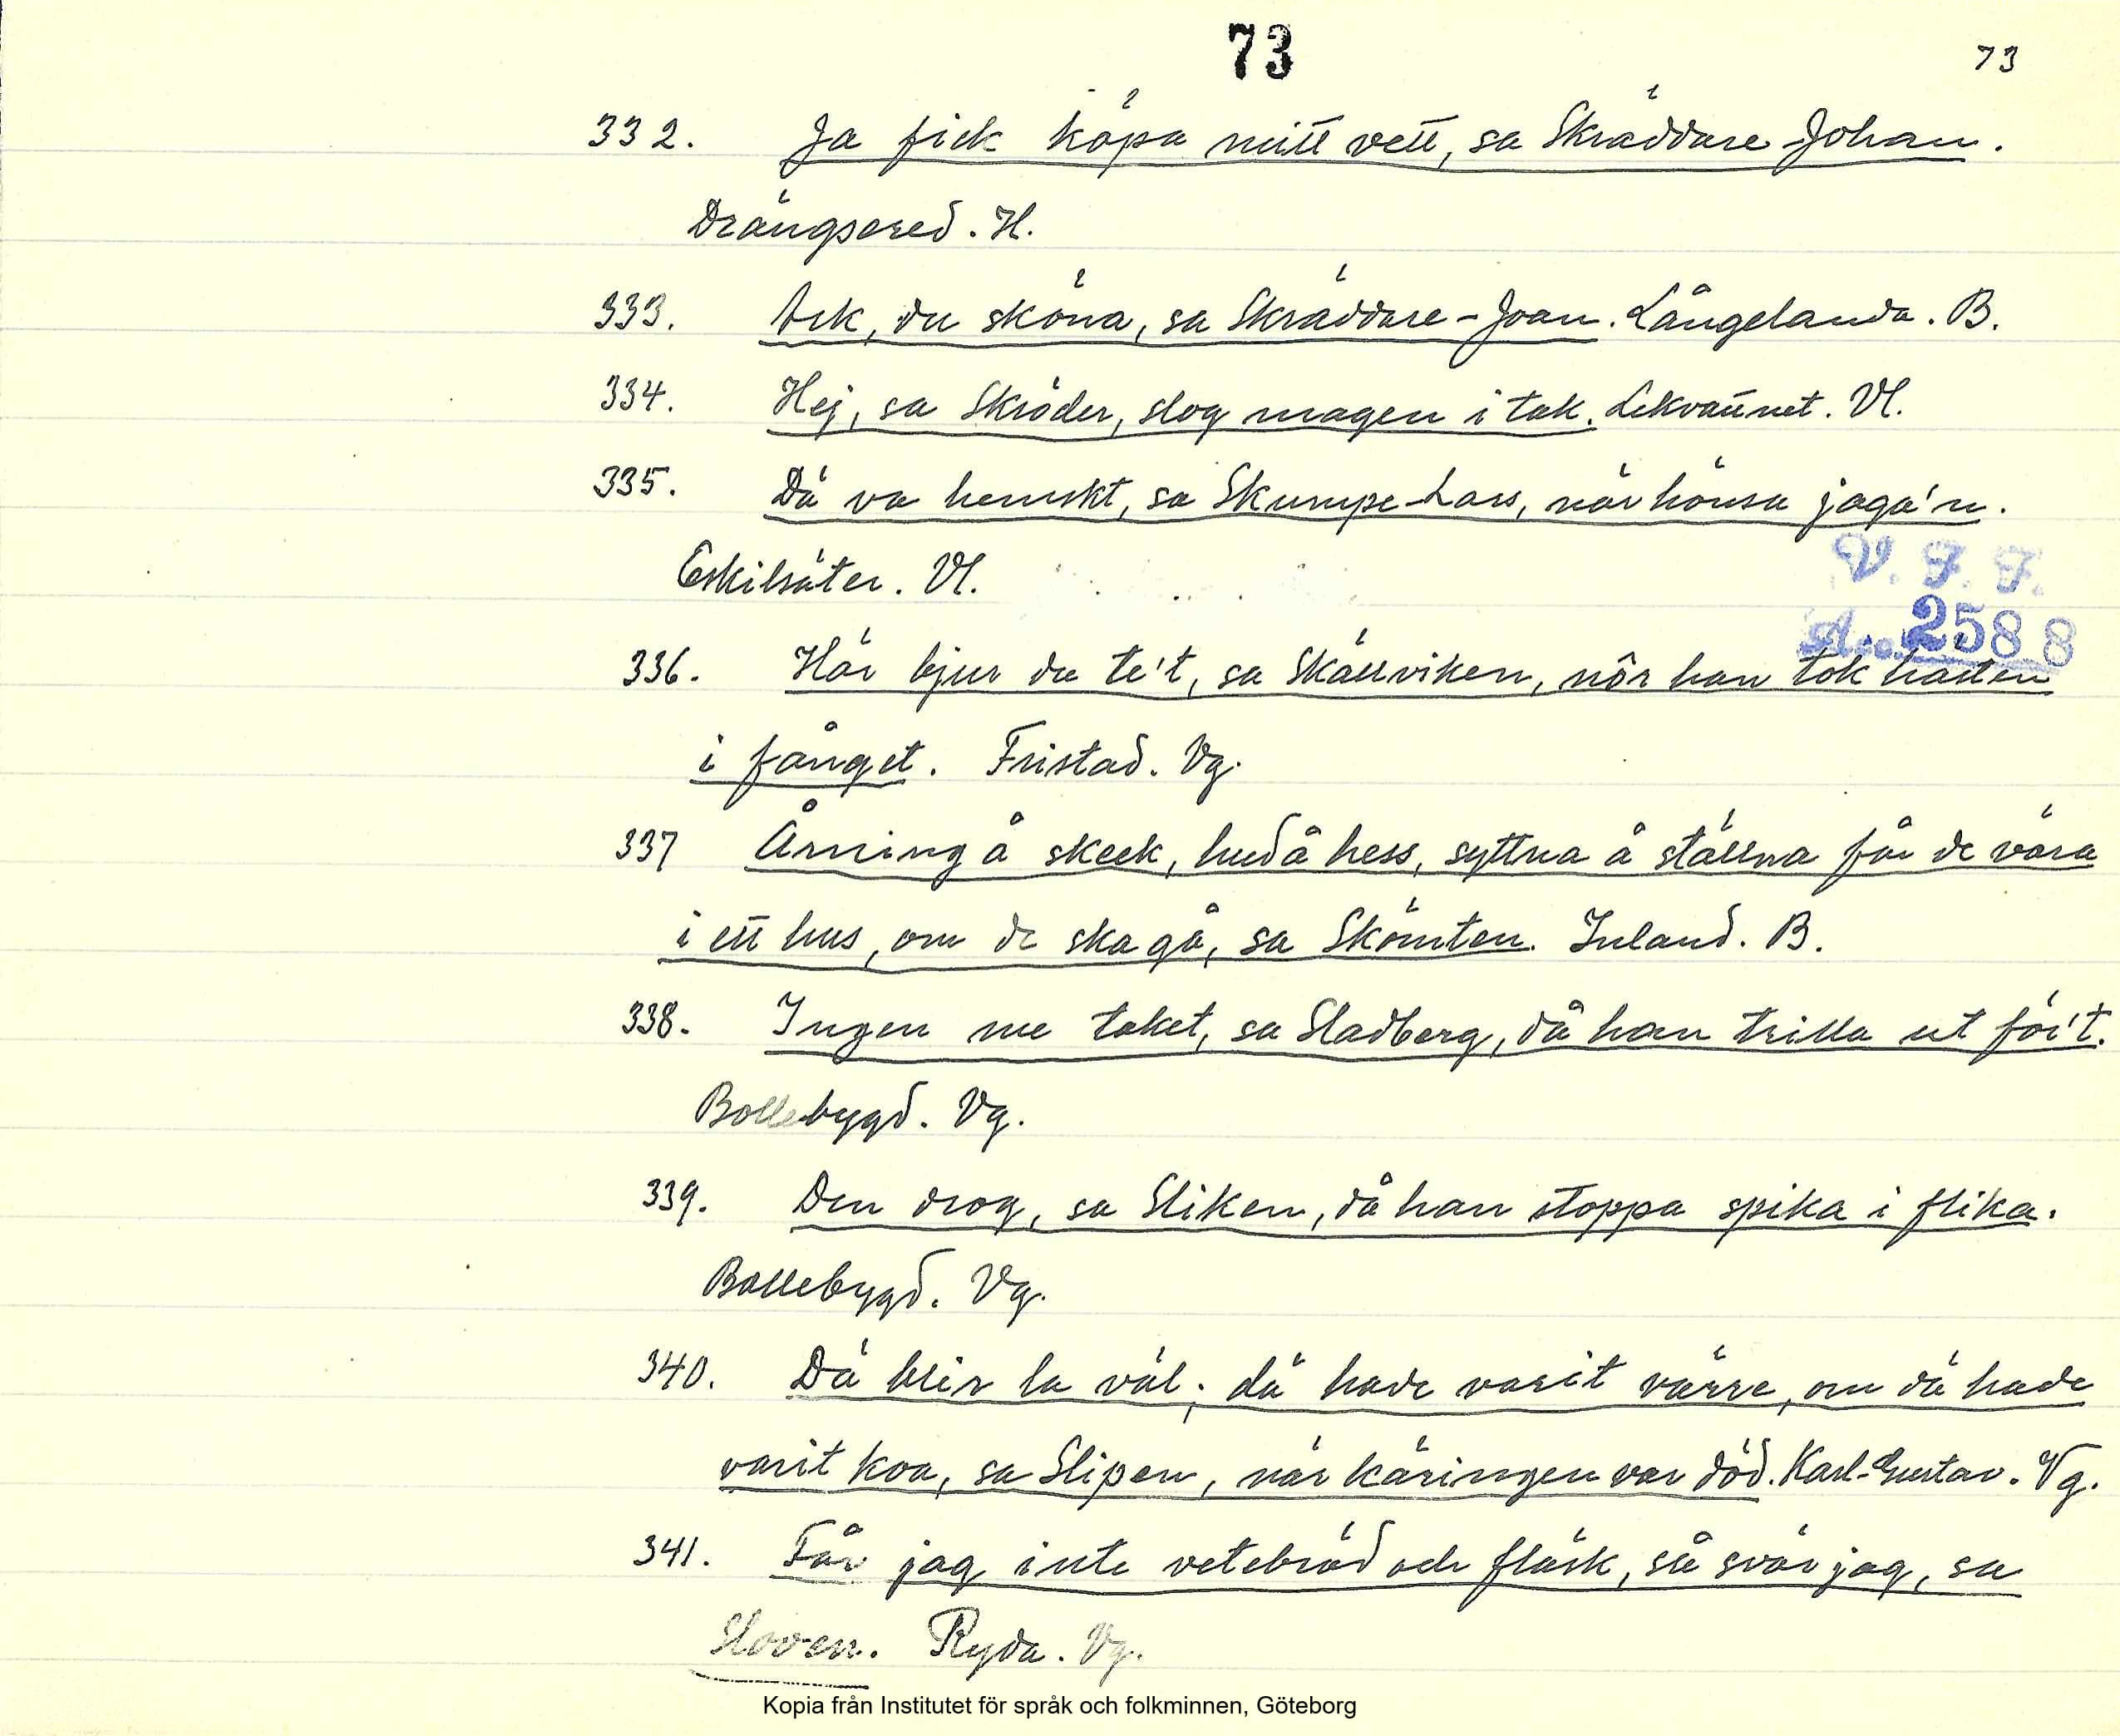 73
73
332. Ja fick köpa mitt vett, sa Skräddare-Johan.
Drängsered. H.
333. Ack, du sköna, sa Skräddare-Joan. Långelanda. B.
334. Hej, sa Skröder, slog magen i tak. Lekvattnet. Vl.
335. Dä va hemskt, sa Skumpe-Lars, när hönsa jaga'n.
Eskilsäter. Vl.
V. F. F.
Acc. 2588
336. Här bjur du te't, sa Skällviken, nôr han tok hatten
i fånget. Fristad. Vg.
337 Årning å skeck, hud å hess, syttna å ställna får de vära
i ett hus, om de ska gå, sa Skömten. Inland. B.
338. Ingen me taket, sa Sladberg, då han trilla ut för't.
Bollebygd. Vg.
339. Den drog, sa Sliken, då han stoppa spika i flika.
Bollebygd. Vg.
340. Dä blir la väl; dä hade varit värre, om dä hade
varit koa, sa Slipen, när käringen var död. Karl-Gustav. Vg.
341. Får jag inte vetebröd och fläsk, så svär jag, sa
Sloven. Ryda. Vg.
Kopia från Institutet för språk och folkminnen, Göteborg